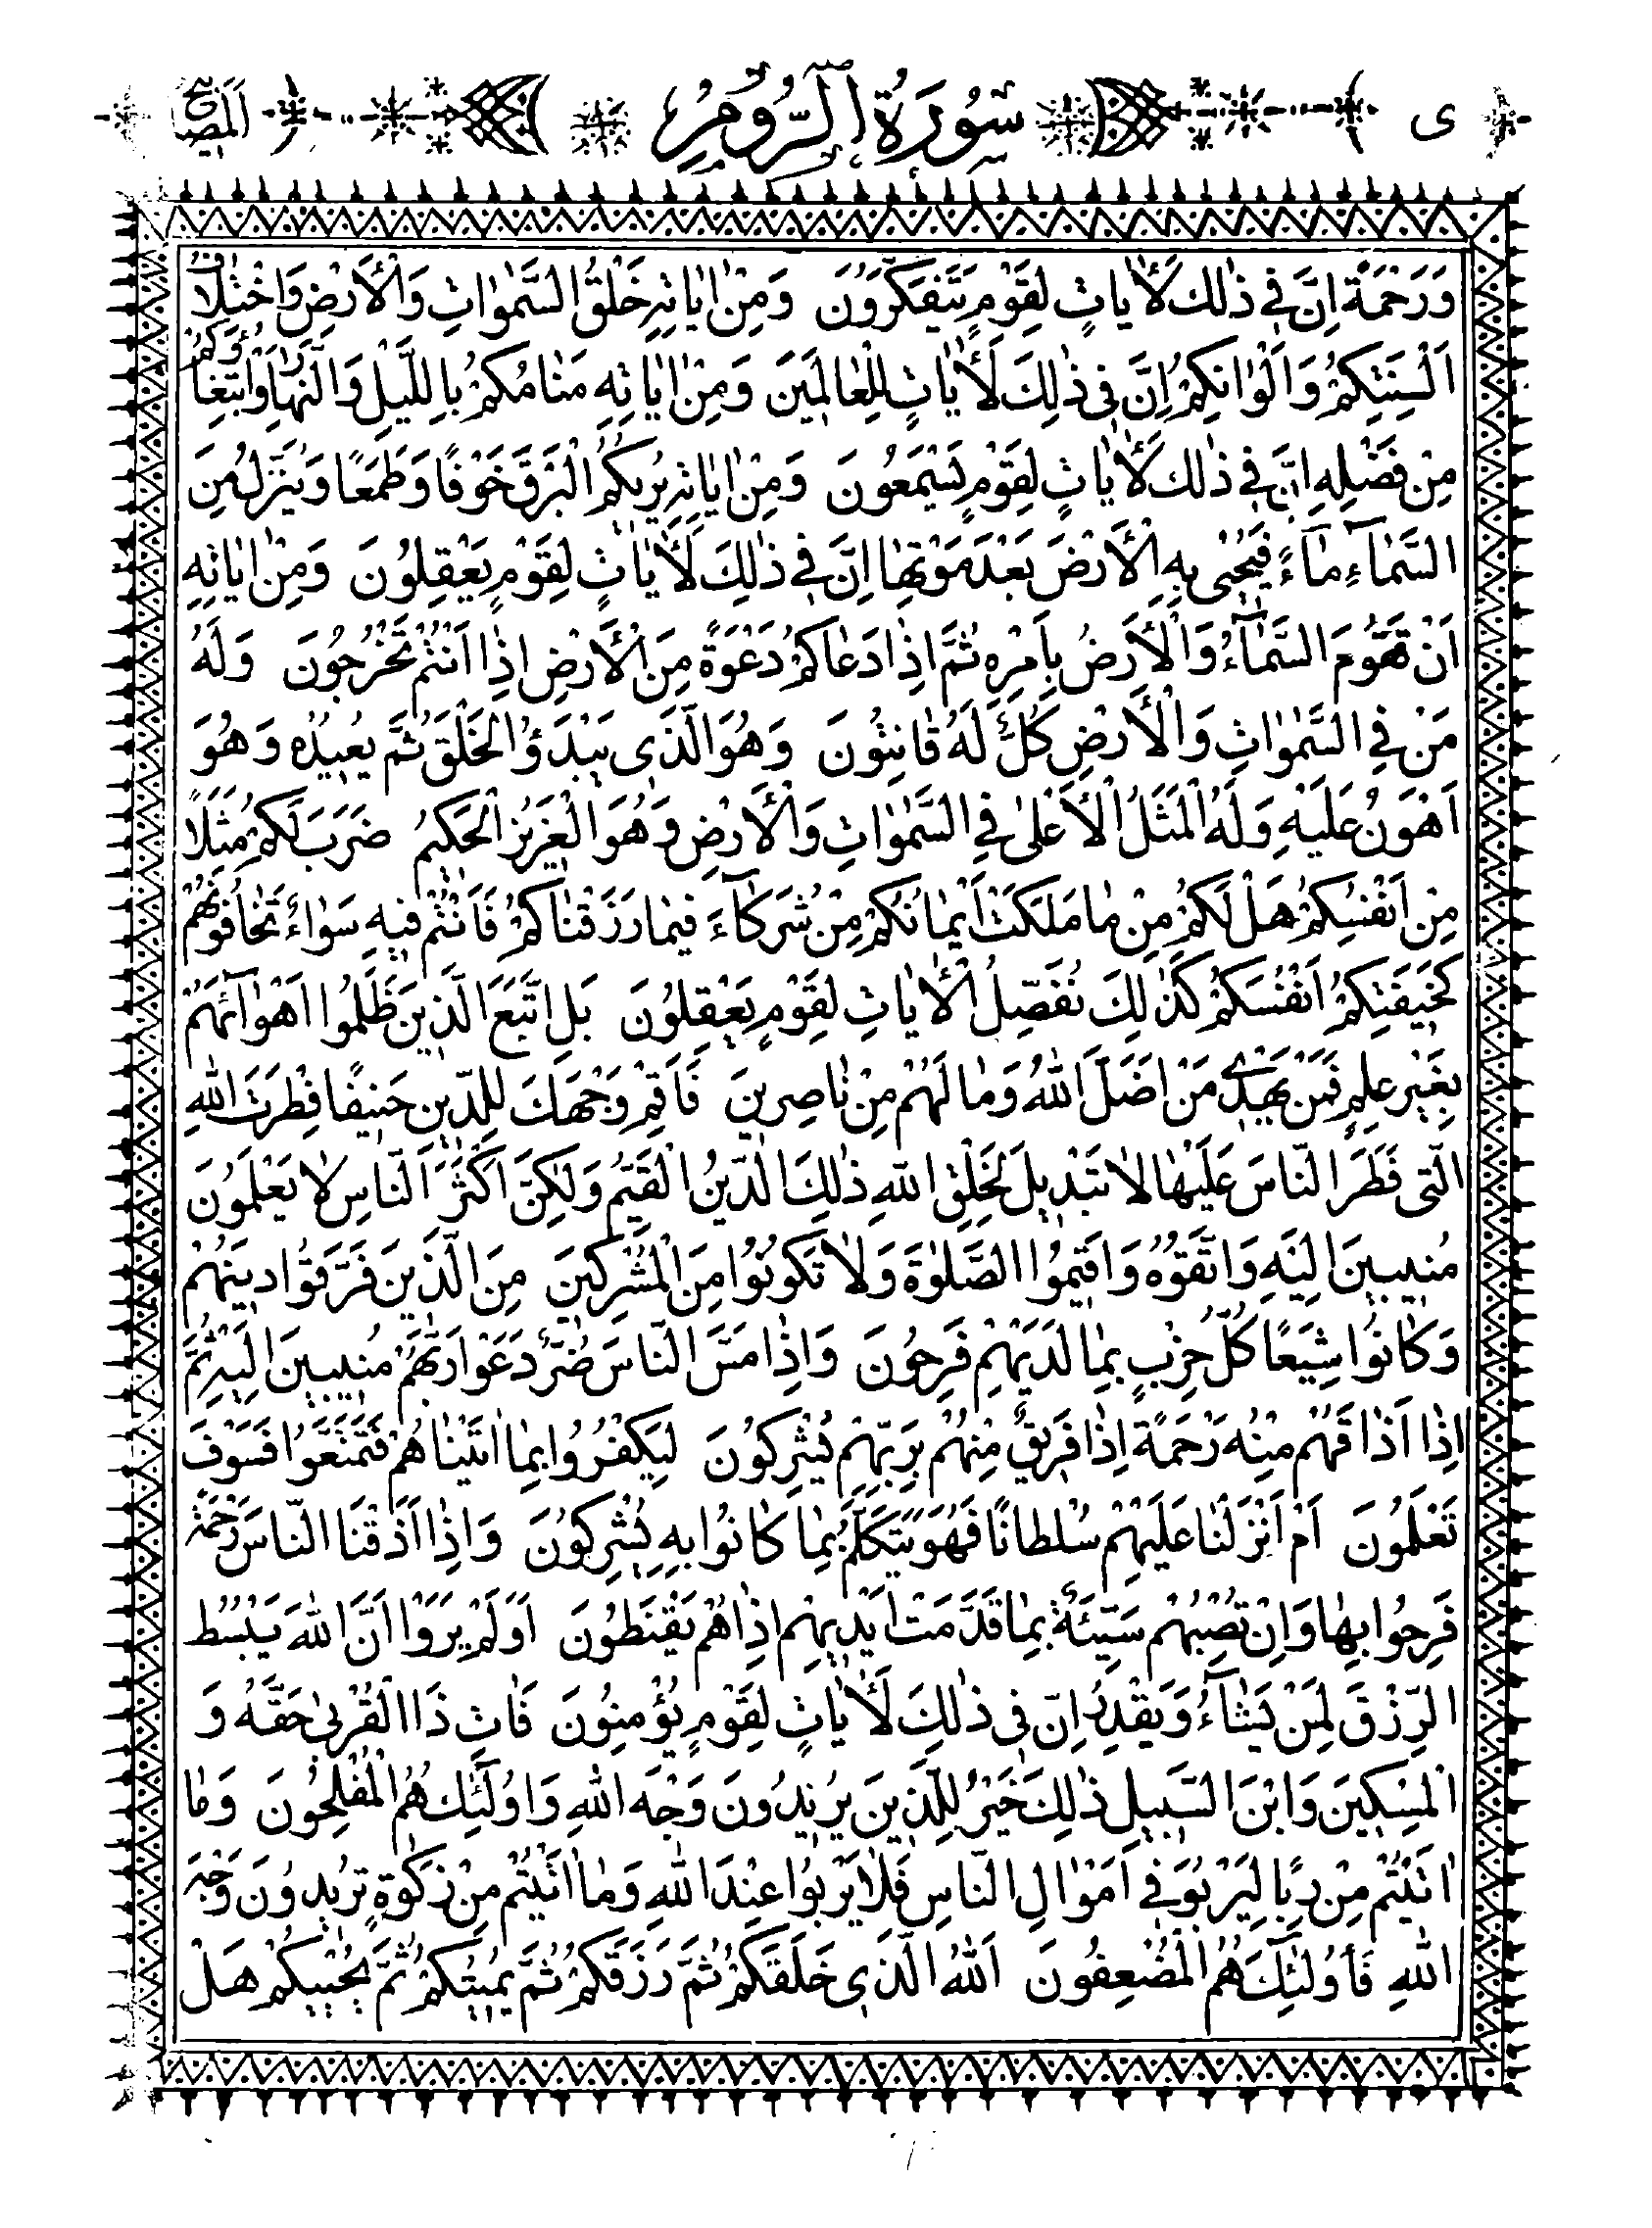 ى سُورَةُ الرُّومِ المصباح
وَرَحْمَةً اِنَّ فِي ذٰلِكَ لَاٰيَاتٍ لِقَوْمٍ يَتَفَكَّرُونَ وَمِنْ اٰيَاتِهِ خَلْقُ السَّمٰوَاتِ وَالْاَرْضِ وَاخْتِلَافُ
اَلْسِنَتِكُمْ وَاَلْوَانِكُمْ اِنَّ فِي ذٰلِكَ لَاٰيَاتٍ لِلْعَالِمَيَنَ وَمِنْ اٰيَاتِهِ مَنَامُكُمْ بِاللَّيْلِ وَالنَّهَارِ وَابْتِغَاؤُكُمْ
مِنْ فَضْلِهِ اِنَّ فِي ذٰلِكَ لَاٰيَاتٍ لِقَوْمٍ يَسْمَعُونَ وَمِنْ اٰيَاتِهِ يُرِيكُمُ الْبَرْقَ خَوْفًا وَطَمَعًا وَيُنَزِّلُ مِنَ
السَّمَآءِ مَآءً فَيُحْيِي بِهِ الْاَرْضَ بَعْدَ مَوْتِهَا اِنَّ فِي ذٰلِكَ لَاٰيَاتٍ لِقَوْمٍ يَعْقِلُونَ وَمِنْ اٰيَاتِهِ
اَنْ تَقُومَ السَّمَآءُ وَالْاَرْضُ بِاَمْرِهِ ثُمَّ اِذَا دَعَاكُمْ دَعْوَةً مِنَ الْاَرْضِ اِذَا اَنْتُمْ تَخْرُجُونَ وَلَهُ
مَنْ فِي السَّمٰوَاتِ وَالْاَرْضِ كُلٌّ لَهُ قَانِتُونَ وَهُوَ الَّذِي يَبْدَؤُا الْخَلْقَ ثُمَّ يُعِيدُهُ وَهُوَ
اَهْوَنُ عَلَيْهِ وَلَهُ الْمَثَلُ الْاَعْلٰى فِي السَّمٰوَاتِ وَالْاَرْضِ وَهُوَ الْعَزِيزُ الْحَكِيمُ ضَرَبَ لَكُمْ مَثَلًا
مِنْ اَنْفُسِكُمْ هَلْ لَكُمْ مِنْ مَا مَلَكَتْ اَيْمَانُكُمْ مِنْ شُرَكَآءَ فِيمَا رَزَقْنَاكُمْ فَاَنْتُمْ فِيهِ سَوَاءٌ تَخَافُونَهُمْ
كَخِيفَتِكُمْ اَنْفُسَكُمْ كَذٰلِكَ نُفَصِّلُ الْاٰيَاتِ لِقَوْمٍ يَعْقِلُونَ بَلِ اتَّبَعَ الَّذِينَ ظَلَمُوا اَهْوَآئَهُمْ
بِغَيْرِ عِلْمٍ فَمَنْ يَهْدِي مَنْ اَضَلَّ اللهُ وَمَا لَهُمْ مِنْ نَاصِرِينَ فَاَقِمْ وَجْهَكَ لِلدِّينِ حَنِيفًا فِطْرَتَ اللهِ
الَّتِي فَطَرَ النَّاسَ عَلَيْهَا لَا تَبْدِيلَ لِخَلْقِ اللهِ ذٰلِكَ الدِّينُ الْقَيِّمُ وَلٰكِنَّ اَكْثَرَ النَّاسِ لَا يَعْلَمُونَ
مُنِيبِينَ اِلَيْهِ وَاتَّقُوهُ وَاَقِيمُوا الصَّلٰوةَ وَلَا تَكُونُوا مِنَ الْمُشْرِكِينَ مِنَ الَّذِينَ فَرَّقُوا دِينَهُمْ
وَكَانُوا شِيَعًا كُلُّ حِزْبٍ بِمَا لَدَيْهِمْ فَرِحُونَ وَاِذَا مَسَّ النَّاسَ ضُرٌّ دَعَوْا رَبَّهُمْ مُنِيبِينَ اِلَيْهِ ثُمَّ
اِذَا اَذَاقَهُمْ مِنْهُ رَحْمَةً اِذَا فَرِيقٌ مِنْهُمْ بِرَبِّهِمْ يُشْرِكُونَ لِيَكْفُرُوا بِمَا اٰتَيْنَاهُمْ فَتَمَتَّعُوا فَسَوْفَ
تَعْلَمُونَ اَمْ اَنْزَلْنَا عَلَيْهِمْ سُلْطَانًا فَهُوَ يَتَكَلَّمُ بِمَا كَانُوا بِهِ يُشْرِكُونَ وَاِذَا اَذَقْنَا النَّاسَ رَحْمَةً
فَرِحُوا بِهَا وَاِنْ تُصِبْهُمْ سَيِّئَةٌ بِمَا قَدَّمَتْ اَيْدِيهِمْ اِذَا هُمْ يَقْنَطُونَ اَوَلَمْ يَرَوْا اَنَّ اللهَ يَبْسُطُ
الرِّزْقَ لِمَنْ يَشَآءُ وَيَقْدِرُ اِنَّ فِي ذٰلِكَ لَاٰيَاتٍ لِقَوْمٍ يُؤْمِنُونَ فَاٰتِ ذَا الْقُرْبٰى حَقَّهُ وَ
الْمِسْكِينَ وَابْنَ السَّبِيلِ ذٰلِكَ خَيْرٌ لِلَّذِينَ يُرِيدُونَ وَجْهَ اللهِ وَاُولٰٓئِكَ هُمُ الْمُفْلِحُونَ وَمَا
اٰتَيْتُمْ مِنْ رِبًا لِيَرْبُوَ فِي اَمْوَالِ النَّاسِ فَلَا يَرْبُوا عِنْدَ اللهِ وَمَا اٰتَيْتُمْ مِنْ زَكٰوةٍ تُرِيدُونَ وَجْهَ
اللهِ فَاُولٰٓئِكَ هُمُ الْمُضْعِفُونَ اَللهُ الَّذِي خَلَقَكُمْ ثُمَّ رَزَقَكُمْ ثُمَّ يُمِيتُكُمْ ثُمَّ يُحْيِيكُمْ هَلْ